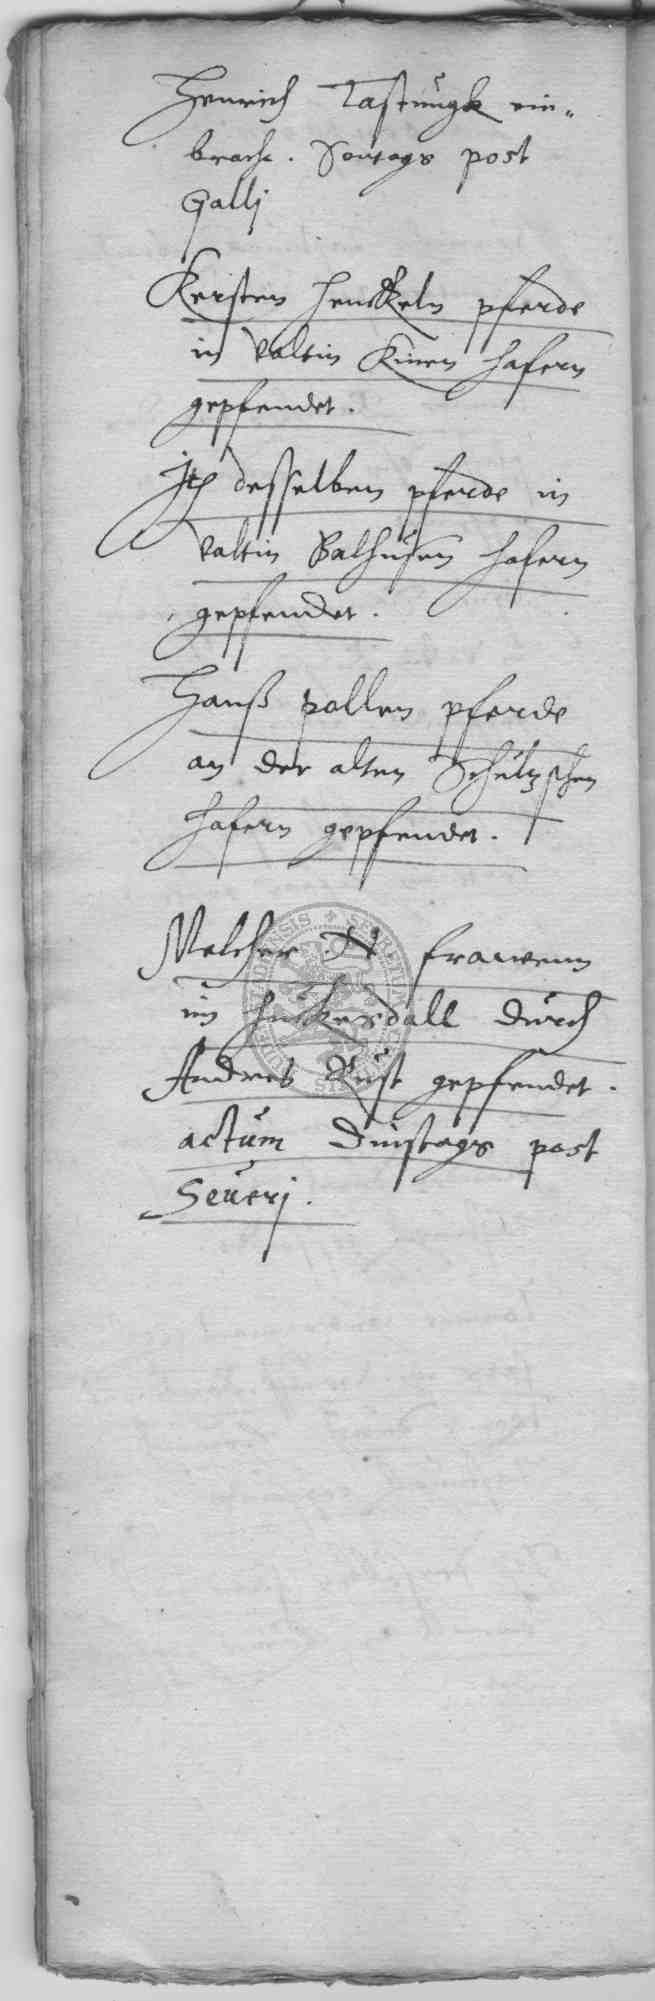 Henrich Tastungk ein-
bracht. Sontags post
Gallj
Kersten Henckeln pferde
in Valtin Kinen hafern
gepfendet.
Jtem desselben pferde in
Valtin Balhusen hafern
gepfendet.
Hanß pollen pferde
an der alten Schultzschen
hafern gepfendet.
Melcher N frawenn
im Huckersdall durch
Andres Rust gepfendet.
actum Dinstags post
Seuerj.